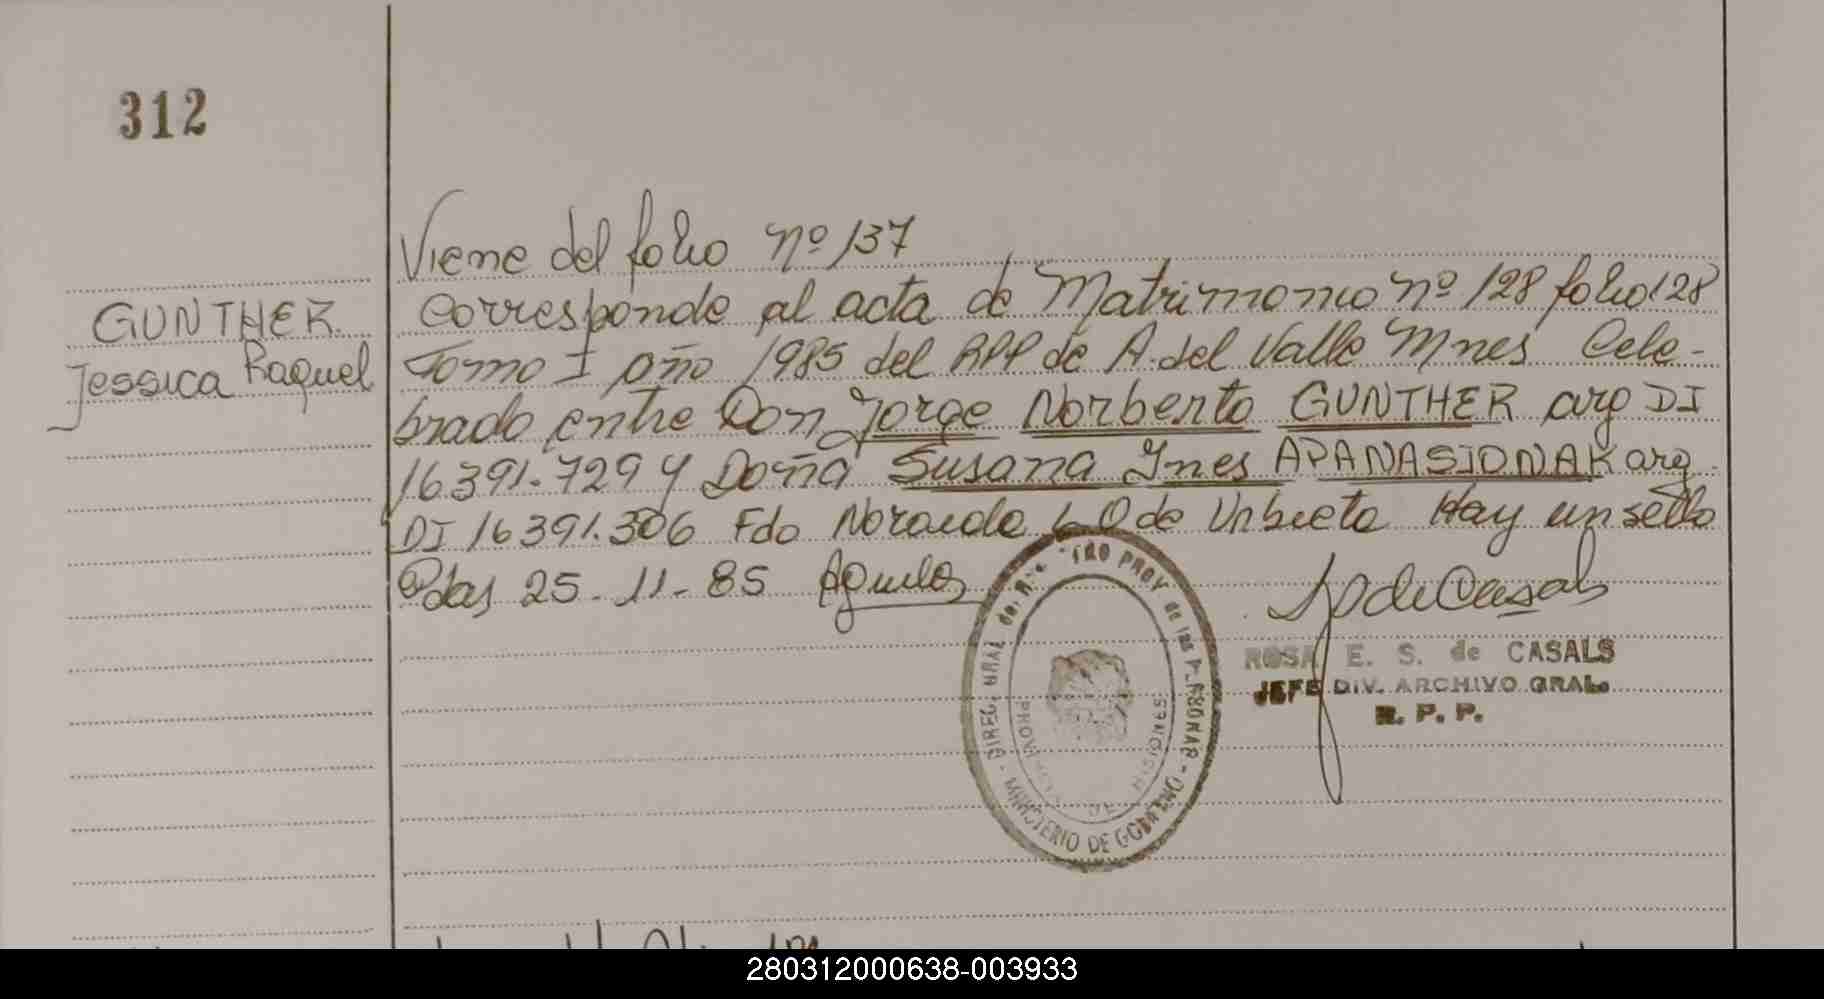 312
Viene del folio nº 137
GUNTHER
Jessica Raquel
Corresponde al acta de Matrimonio nº 128 folio 128
Tomo I año 1985 del RPP de A. del Valle Mnes Cele-
brado entre Don Jorge Norberto GUNTHER arg DI
16391.729 y Doña Susana Ynes APANASIONAK arg
DI 16391.306 Fdo de Hay un sello
Pdas 25-11-85
DIREC. GRAL de PROV de las PERSONAS - MINISTERIO DE GOBIERNO
PROVINCIA DE MISIONES
ROSA E. S. de CASALS
JEFE DIV. ARCHIVO GRAL.
R. P. P.
280312000638-003933